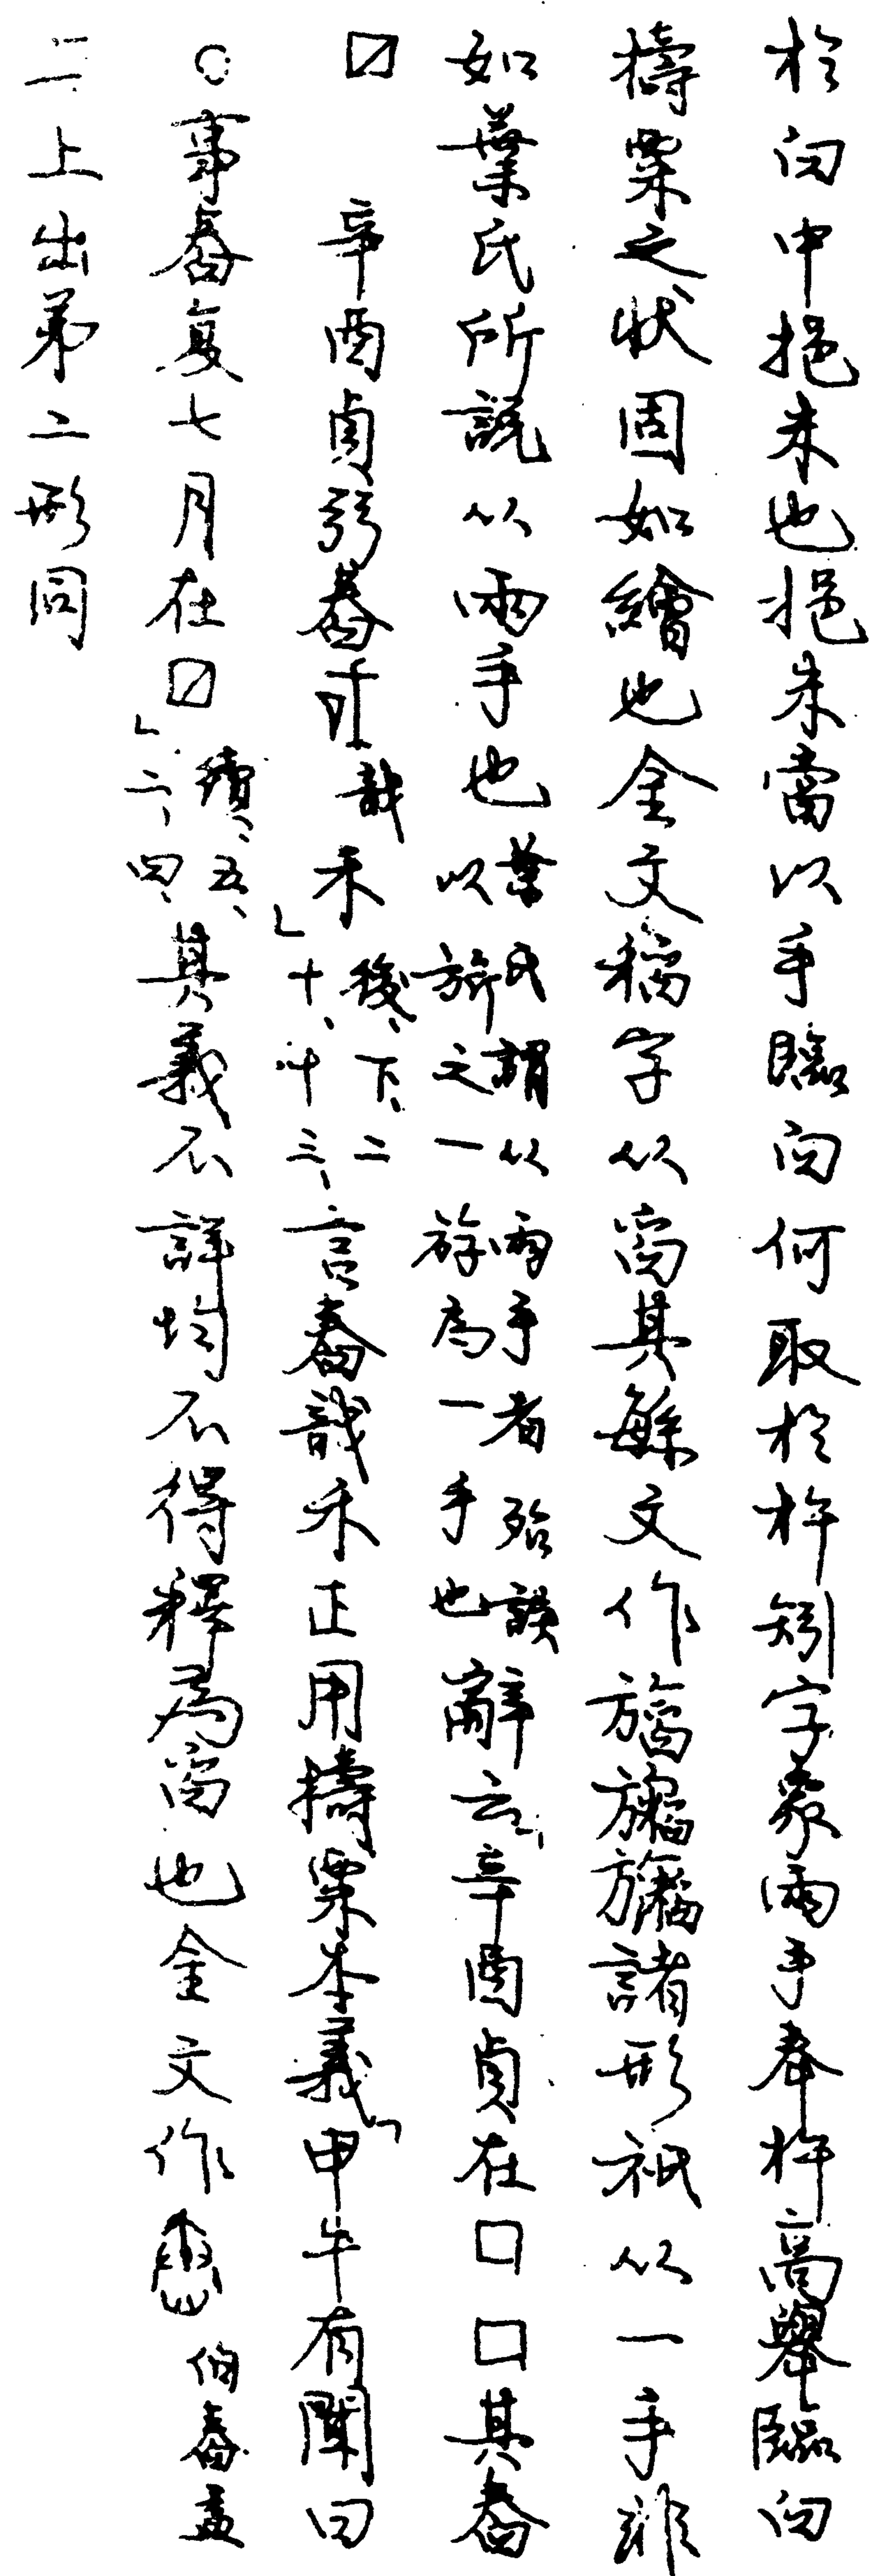 於臼中挹米也挹米當以手臨臼何取於杵矧字象兩手奉杵高舉臨臼
擣粟之狀固如繪也金文稻字从舀其緐文作諸形祇从一手非
如葉氏所說从兩手也葉氏謂从兩手者殆誤以旂之一斿為一手也辭云「辛酉貞在囗囗其舂
〼 辛酉貞弜舂禾」後、下、二十、十三、言舂禾正用擣粟本義「甲午有聞曰
〇事舂复七月在〼」續、五、二、四、其義不詳均不得釋為舀也金文作伯舂盉
二、上出弟二形同